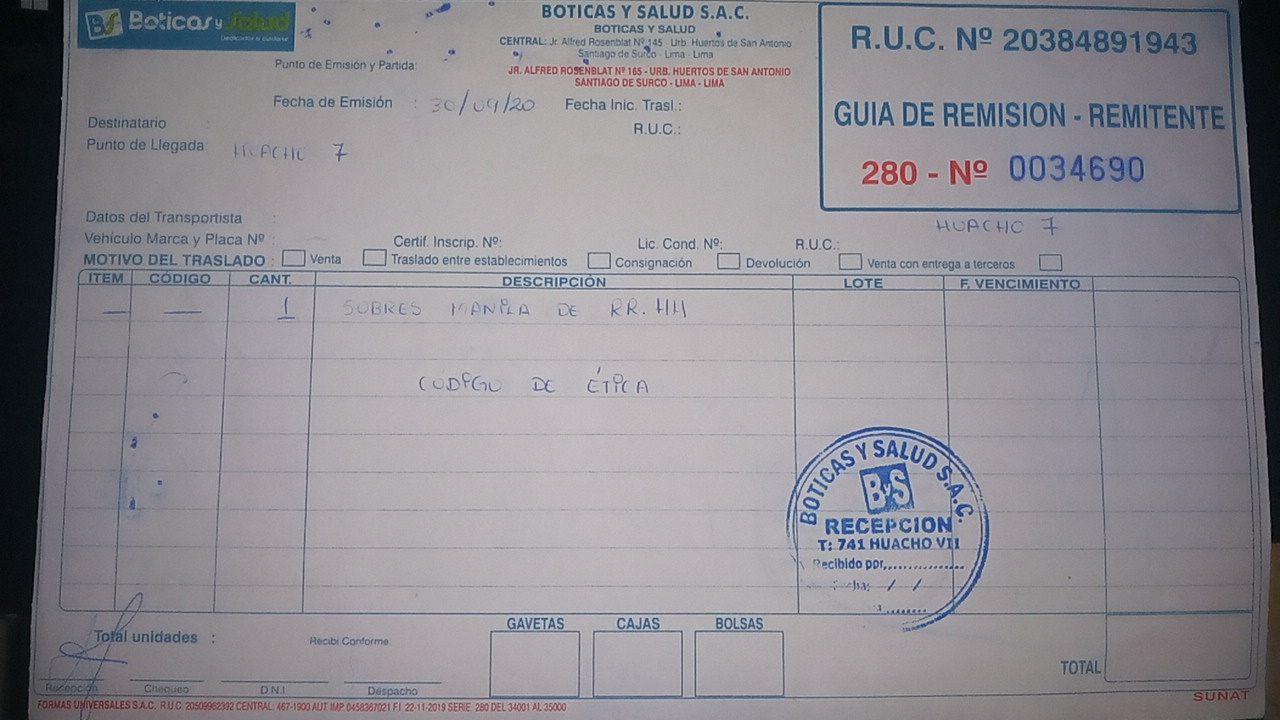 Boticas y Salud
BOTICAS Y SALUD S.A.C.
BOTICAS Y SALUD
CENTRAL: Jr. Alfred Rosenblat Nº 145 Urb. Huertos de San Antonio
Santiago de Surco - Lima - Lima
Punto de Emisión y Partida:
JR. ALFRED ROSENBLAT Nº 165 - URB. HUERTOS DE SAN ANTONIO
SANTIAGO DE SURCO - LIMA - LIMA
R.U.C. Nº 20384891943
GUIA DE REMISION - REMITENTE
280 - Nº 0034690
Fecha de Emisión : 30/09/20 Fecha Inic. Trasl.:
R.U.C.:
Destinatario
Punto de Llegada: HUACHO 7
Datos del Transportista :
HUACHO 7
Vehículo Marca y Placa Nº : Certif. Inscrip. Nº: Lic. Cond. Nº: R.U.C.:
MOTIVO DEL TRASLADO : Venta Traslado entre establecimientos Consignación Devolución Venta con entrega a terceros
ITEM CÓDIGO CANT. DESCRIPCIÓN LOTE F. VENCIMIENTO
— — 1 SOBRES MANILA DE RR.HH
CODIGO DE ÉTICA
BOTICAS Y SALUD S.A.C.
ByS
RECEPCION
T: 741 HUACHO VII
Recibido por..............
Fecha: / /
GAVETAS CAJAS BOLSAS
Total unidades : Recibi Conforme:
TOTAL
Recepción Chequeo D.N.I. Despacho
SUNAT
FORMAS UNIVERSALES S.A.C. R.U.C. 20509962392 CENTRAL: 467-1900 AUT IMP. 0458367021 F.I. 22-11-2019 SERIE: 280 DEL 34001 AL 35000